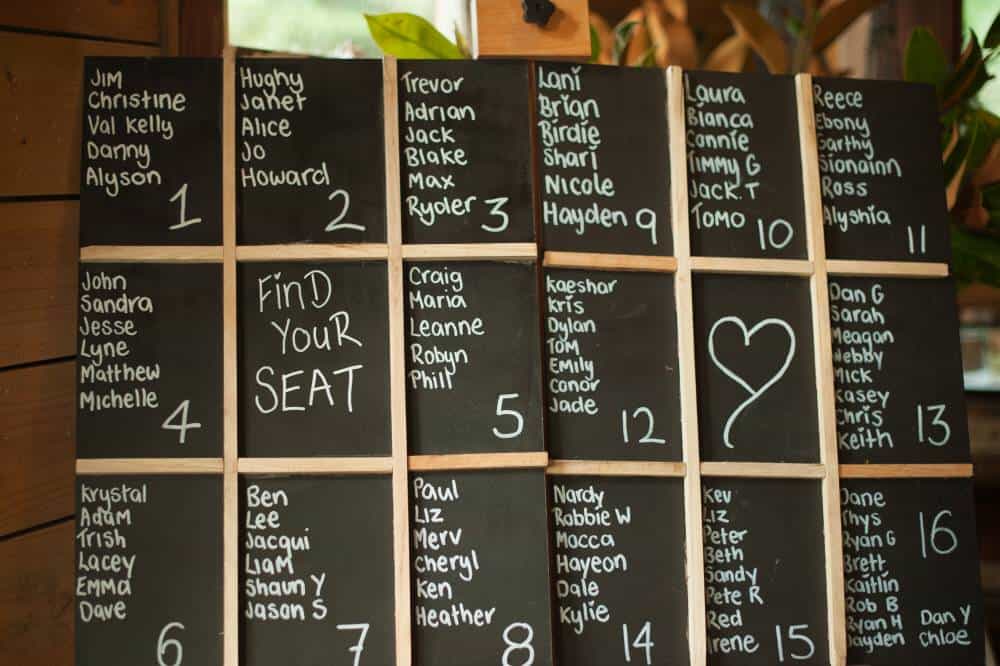 Jim
Christine
Val Kelly
Danny
Alyson
1
Hughy
Janet
Alice
Jo
Howard
2
Trevor
Adrian
Jack
Blake
Max
Ryder
3
Lani
Brian
Birdie
Shari
Nicole
Hayden
9
Laura
Bianca
Connie
Timmy G
Jack.T
Tomo
10
Reece
Ebony
Garthy
Sionainn
Ross
Alyshia
11
John
Sandra
Jesse
Lyne
Matthew
Michelle
4
FinD
YOUR
SEAT
Craig
Maria
Leanne
Robyn
Phill
5
Kaeshar
Kris
Dylan
Tom
Emily
Conor
Jade
12
Dan G
Sarah
Meagan
Webby
Mick
Kasey
Chris
Keith
13
Krystal
Adam
Trish
Lacey
Emma
Dave
6
Ben
Lee
Jacqui
Liam
Shaun Y
Jason S
7
Paul
Liz
Merv
Cheryl
Ken
Heather
8
Nardy
Robbie W
Macca
Hayeon
Dale
Kylie
14
Kev
Liz
Peter
Beth
Sandy
Pete R
Red
Irene
15
Dane
Rhys
Ryan G
Brett
Kaitlin
Rob B
Ryan H
Jayden
16
Dan Y
Chloe